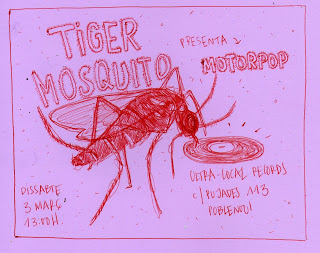 TiGER
MOSQUITO
PRESENTA A
MOTORPOP
DISSABTE
3 MARÇ
13:00H
ULTRA-LOCAL RECORDS
c/ PUJADES 113
POBLENOU